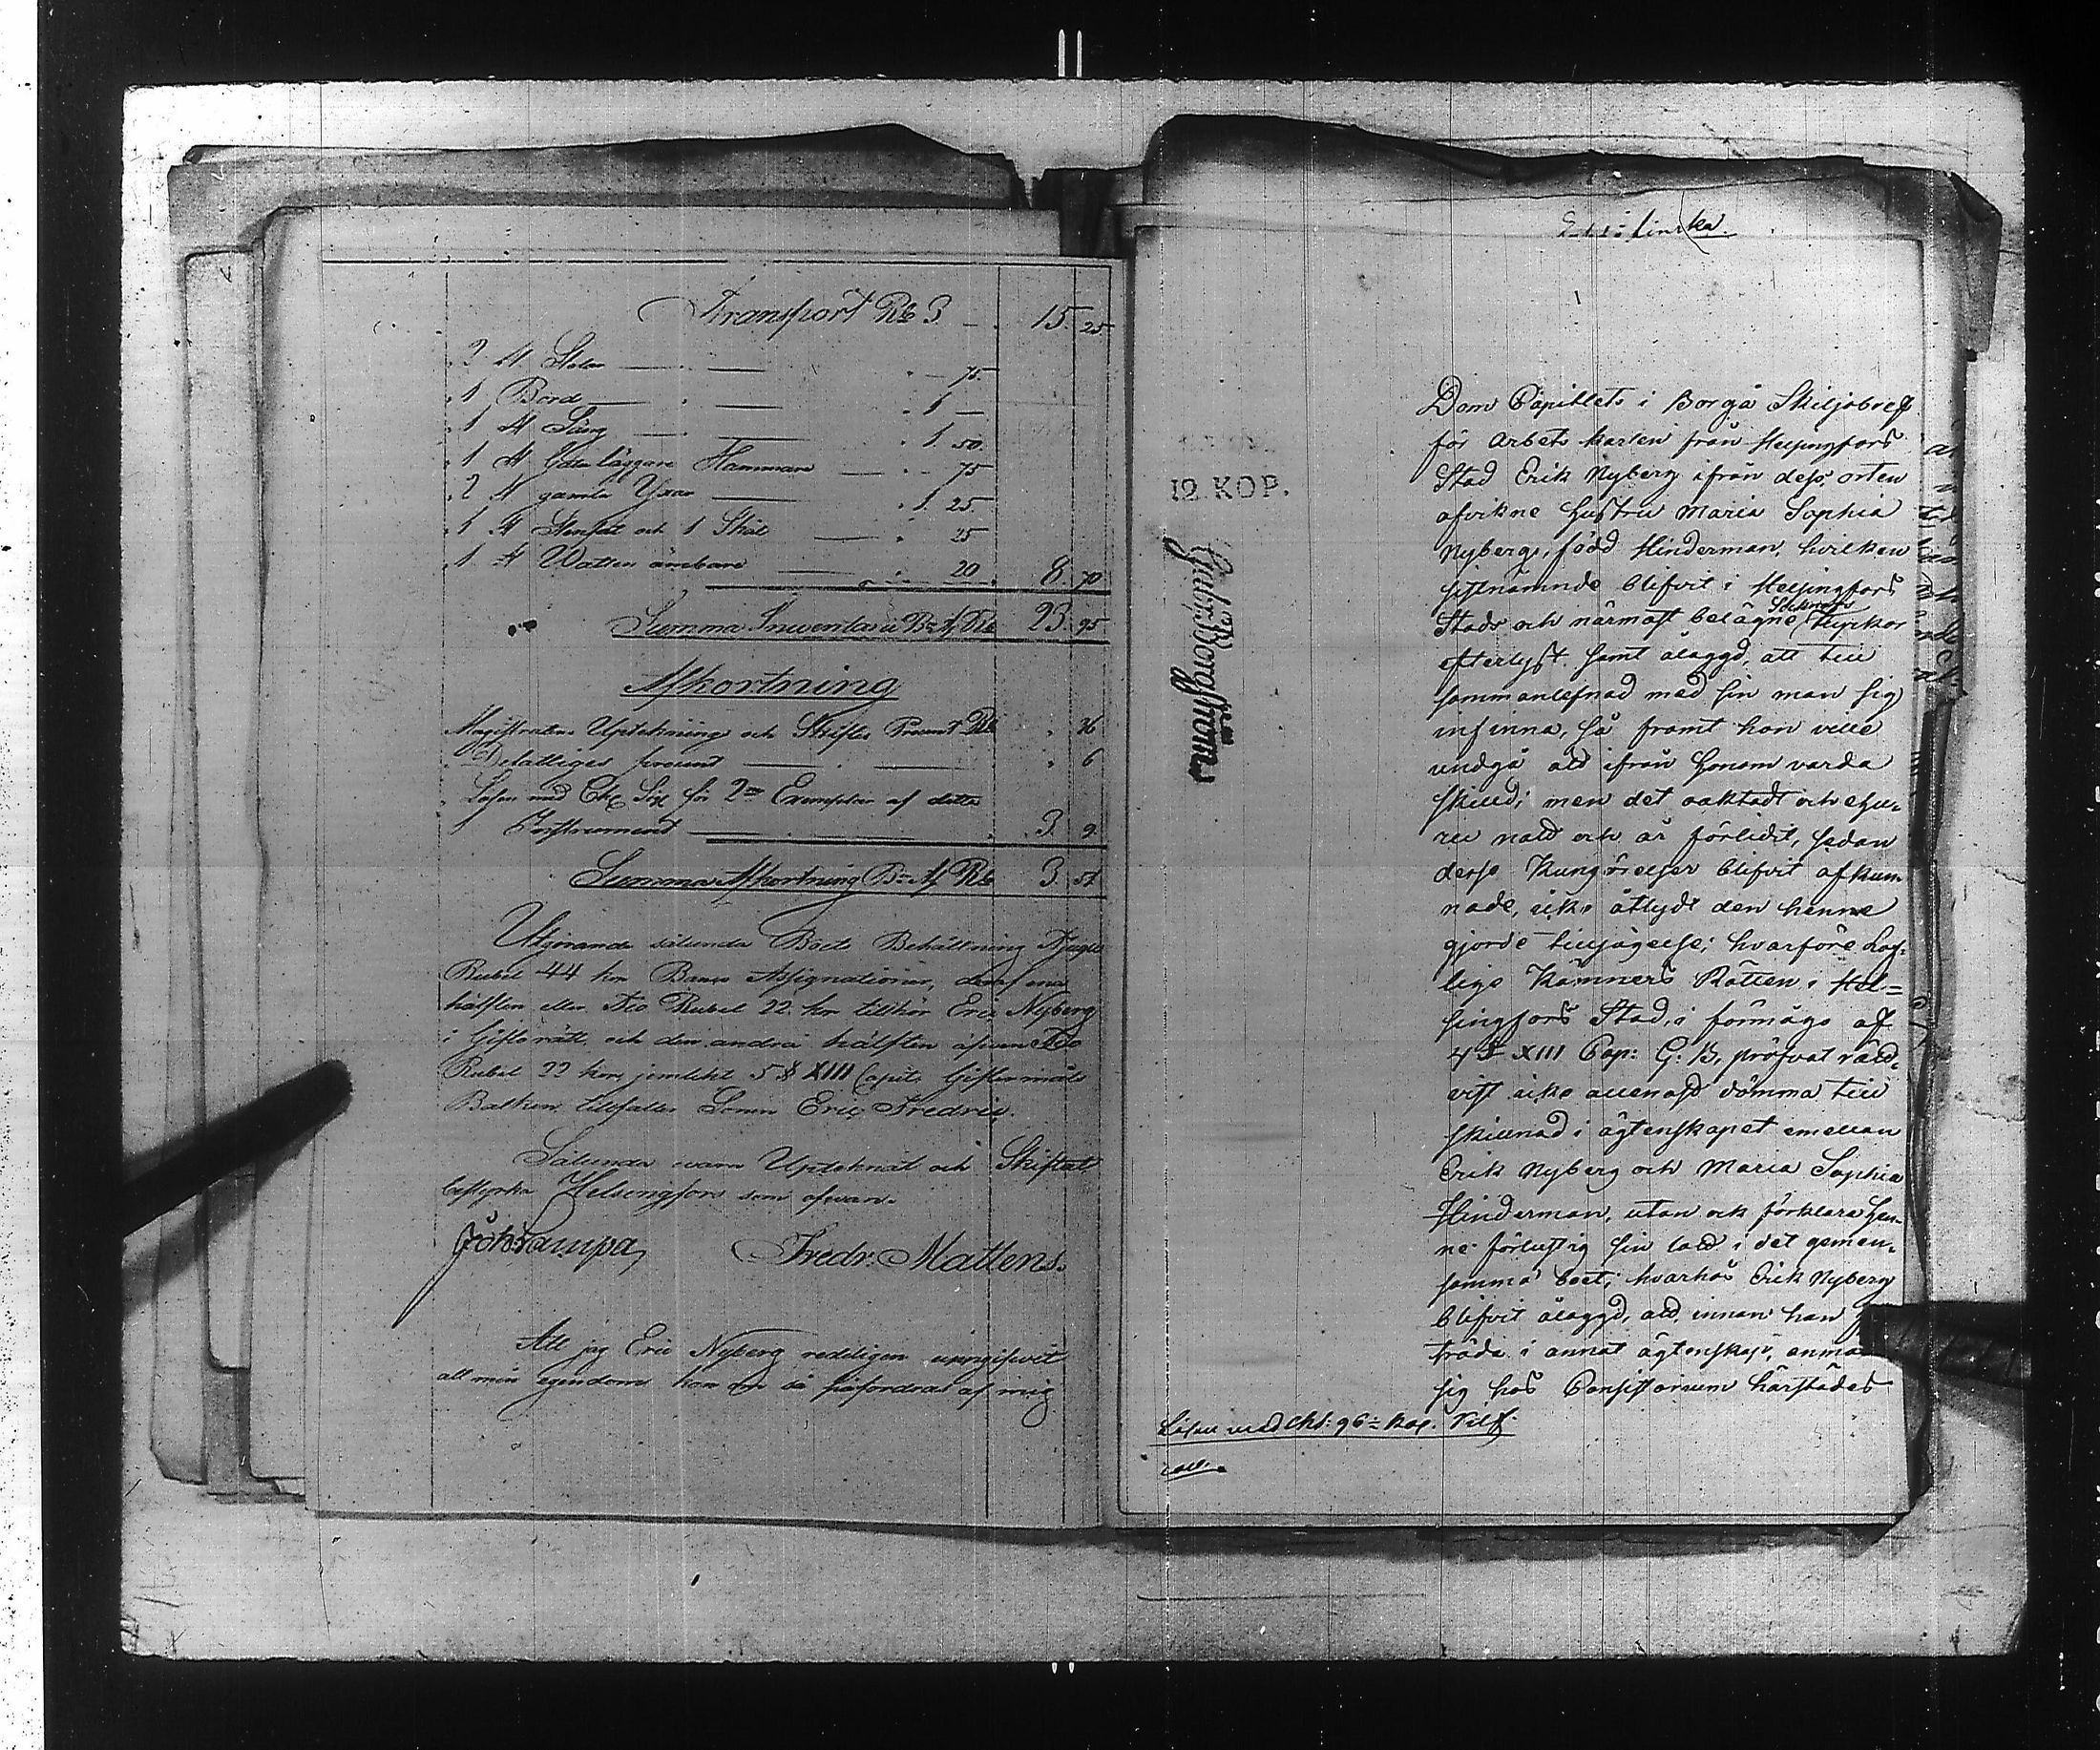 Transport Rb S. — 15. 25
2 st Stolar — — 75.
1 Bord — — 1 —
1 st Säng — — 1 50.
1 st Gatu läggare Hammare — 75
2 st gamla Yxor — 1. 25
1 st Stenfat och 1 Skål — 25
1 st Watten ämbare — 20 8. 70
Summa Inventarii Bco Ass Rb 23. 95
Afkortning
Magistratens Uptekningz och Skifles Procent Rb 36
Delattiges procent — 6
Lösen med Ch. Sig. för 2ne Exemplar af detta
Instrument — 3. 9.
Summa Afkortning Bco Ass Rb 3. 51
Utgörande sålunda Boets Behållning Tjugu
Rubel 44 kop Banco Assignationer, deraf ena
hälften eller Tio Rubel 22 kop tillhör Eric Nyberg
i Giftorätt, och den andra hälften äfven Tio
Rubel 22 kop, jemlikt 5 § XIII Capit. Giftermåls
Balken, tillfaller Sonen Eric Fredric.
Sålunda vara Upteknat och Skiftat
bestyrka Helsingfors som ofvan.
Joh. Lampa, Fredr. Mattens.
Att jag Eric Nyberg redeligen uppgifvit
all min egendom kan om så påfordras af mig
12. KOP.
Dom Capitlets i Borgå Skiljobref
för Arbets karlen från Helsingfors
Stad Erik Nyberg ifrån dess orten
afvikne hustru Maria Sophia
Nyberg, född Hinderman, hvilken
sistnämnde blifvit i Helsingfors
Stads och närmast belägne Socknars Kyrkor
efterlyst samt ålaggd, att till
sammanlefnad med sin man sig
infinna, så framt hon ville
undgå att ifrån honom varda
skilld; men det oaktadt och ehu-
ru natt och år förlidit, sedan
desse Kungörelser blifvit afkun-
nade, icke åtlydt den henne
gjorde tillsägelse; hvarföre Lof-
lige Kämners Rätten i Hel=
singfors Stad, i förmågo af
4 § XIII Cap: G: B, pröfvat rätt-
vist icke allenast dömma till
skillnad i ägtenskapet emellan
Erik Nyberg och Maria Sophia
Hinderman, utan ock förklara hen-
ne förlustig sin lott i det gemen-
samma boet; hvarhos Erik Nyberg
blifvit ålaggd, att, innan han
träda i annat ägtenskap, anmä
sig hos Consistorium härstädes
Lösen med Chs: 96 kop. Silf.